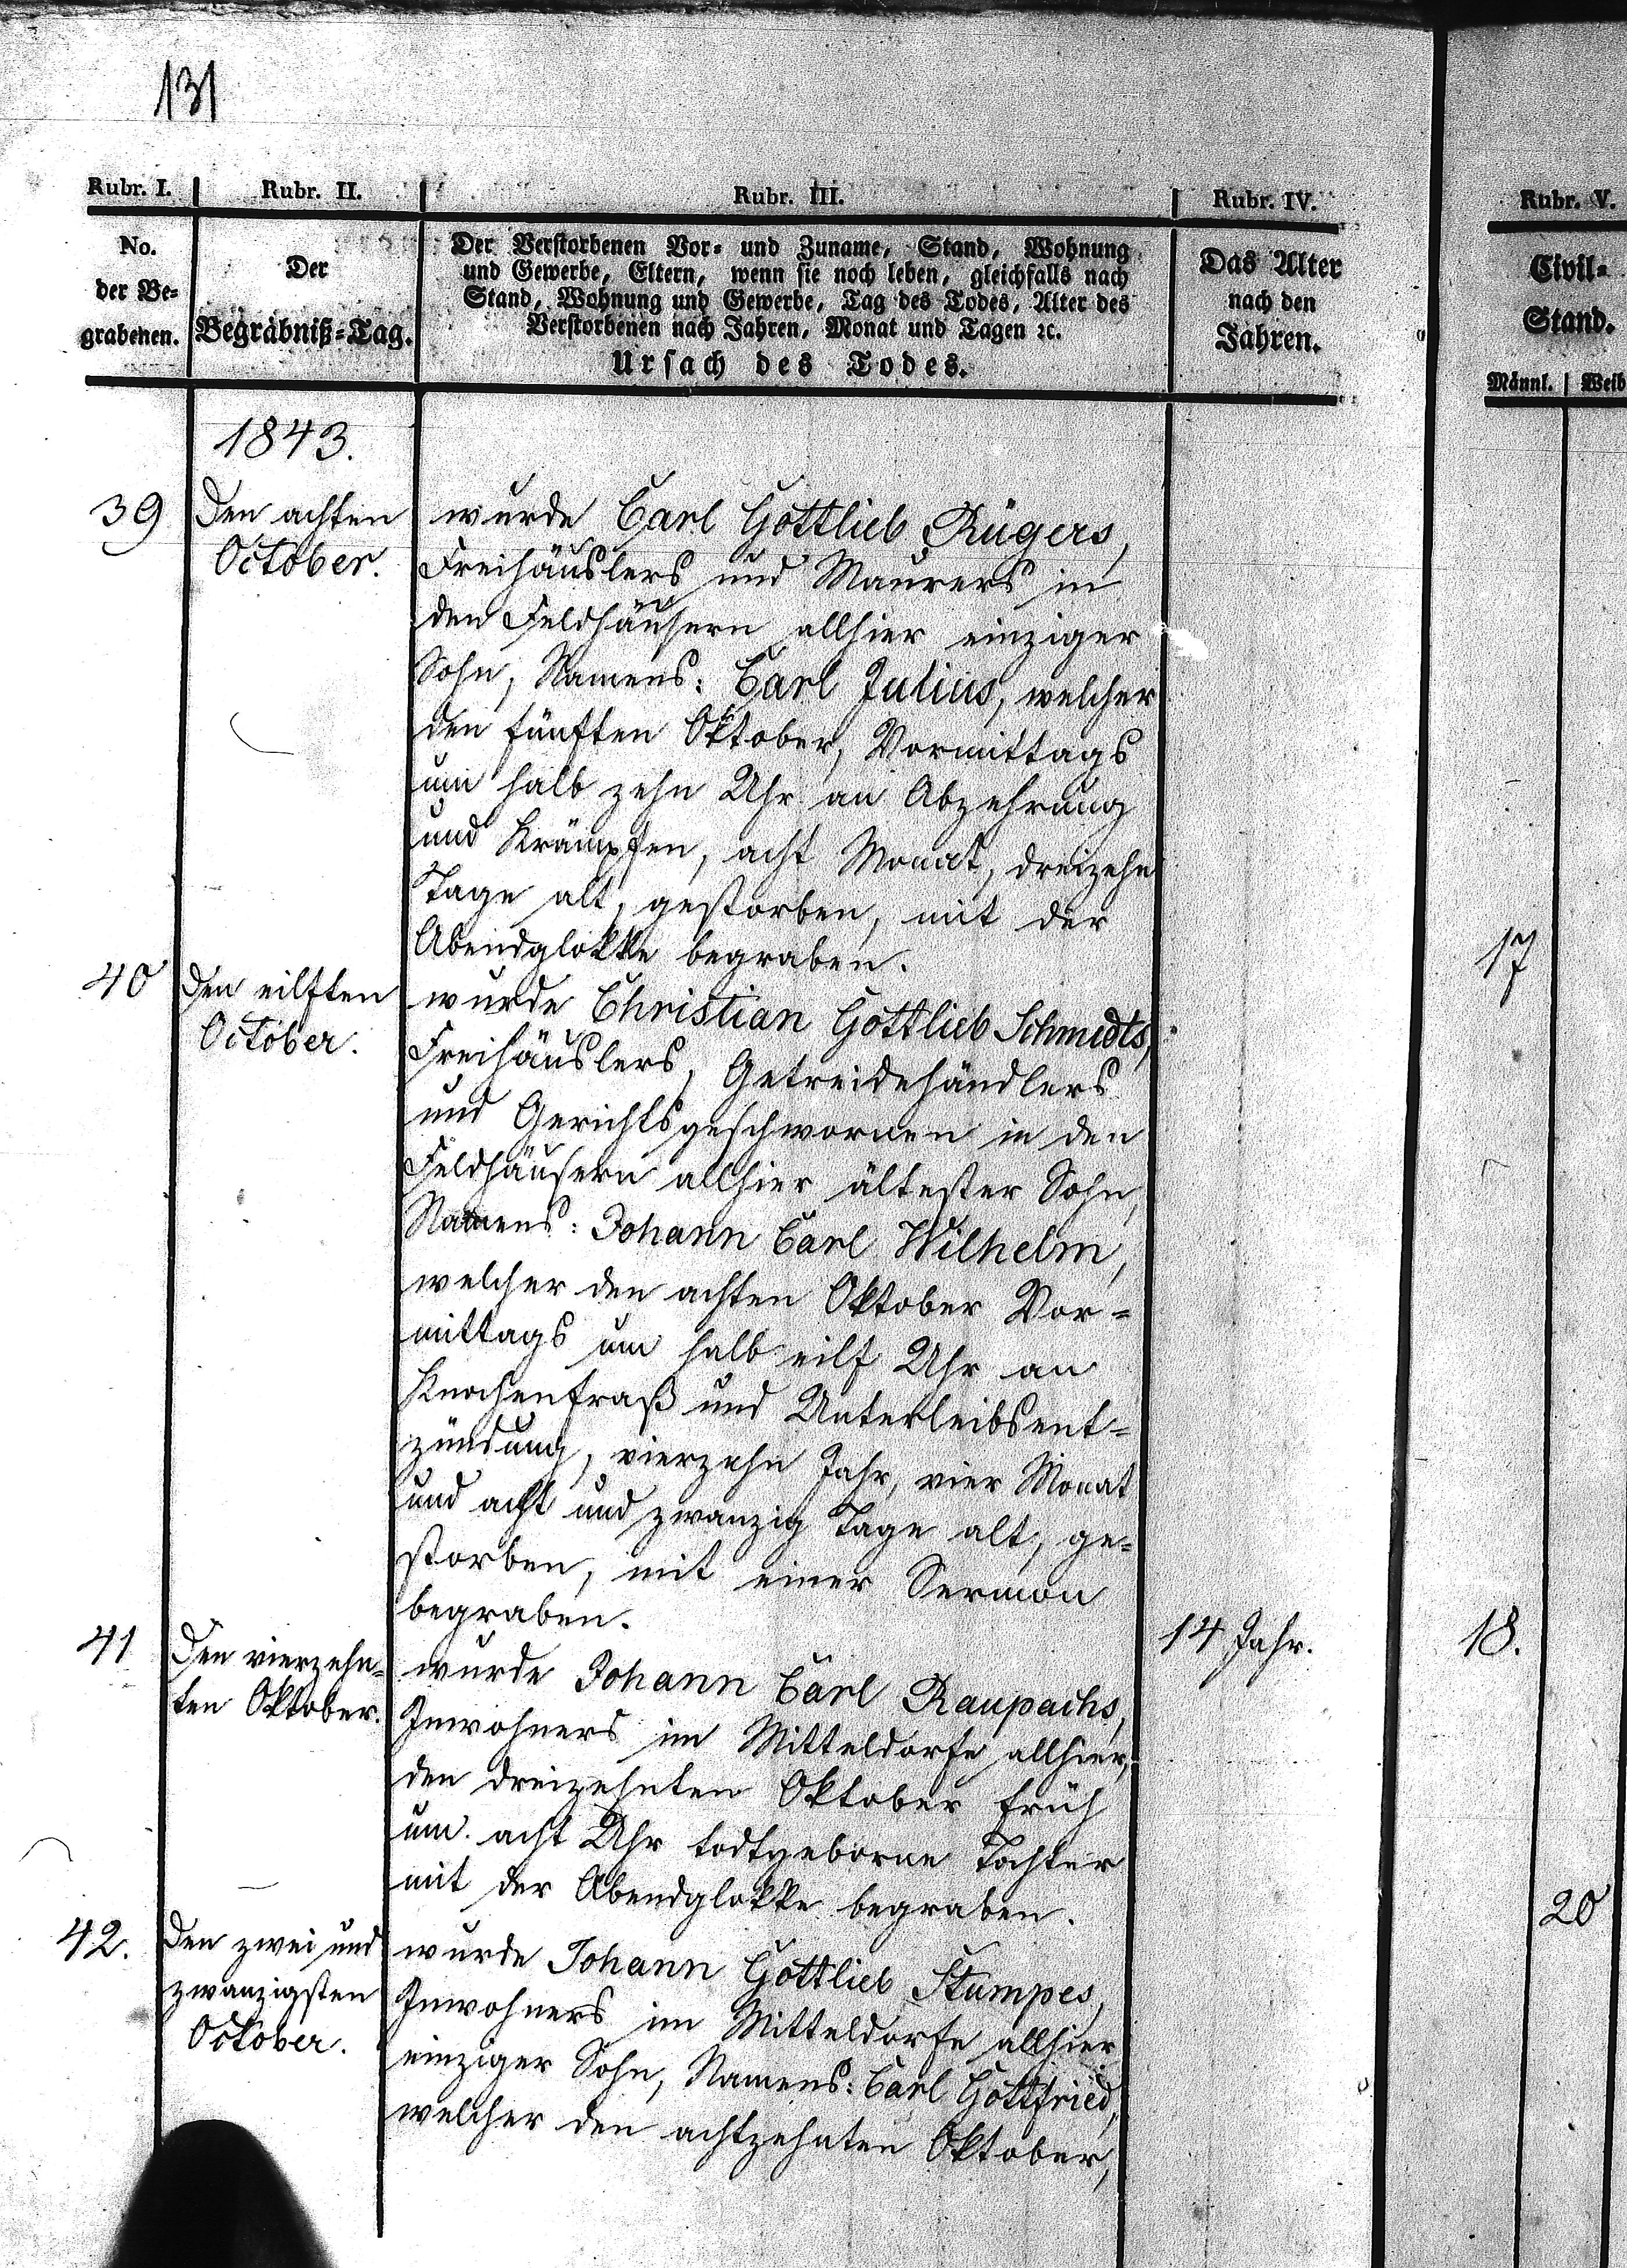 131
Rubr. I. Rubr. II. Rubr. III. Rubr. IV. Rubr. V.
No.
der Be-
grabenen.
Der
Begräbniß-Tag.
Der Verstorbenen Vor- und Zuname, Stand, Wohnung
und Gewerbe, Eltern, wenn sie noch leben, gleichfalls nach
Stand, Wohnung und Gewerbe, Tag des Todes, Alter des
Verstorbenen nach Jahren, Monat und Tagen ꝛc.
Ursach des Todes.
Das Alter
nach den
Jahren.
Civil-
Stand.
Männl. Weib
1843.
39
Den achten
October.
wurde Carl Gottlieb Rügers,
Freihäuslers und Maurers in
den Feldhäusern allhier einziger
Sohn, Namens: Carl Julius, welcher
den fünften Oktober, Vormittags
um halb zehn Uhr an Abzehrung
und Krämpfen, acht Monat, dreizehn
Tage alt, gestorben, mit der
Abendglokke begraben.
17
40
Den eilften
October.
wurde Christian Gottlieb Schmidts,
Freihäuslers, Getreidehändlers
und Gerichtsgeschwornen in den
Feldhäusern allhier ältester Sohn,
Namens: Johann Carl Wilhelm,
welcher den achten Oktober Vor-
mittags um halb eilf Uhr an
Knochenfraß und Unterleibsent-
zündung, vierzehn Jahr, vier Monat
und acht und zwanzig Tage alt, ge-
storben, mit einer Sermon
begraben.
14 Jahr.
18.
41
Den vierzehn-
ten Oktober.
wurde Johann Carl Raupachs,
Inwohners im Mitteldorfe allhier,
den dreizehnten Oktober früh
um acht Uhr todtgeborne Tochter
mit der Abendglokke begraben.
20
42.
Den zwei und
zwanzigsten
October.
wurde Johann Gottlieb Stumpes,
Inwohners im Mitteldorfe allhier
einziger Sohn, Namens: Carl Gottfried,
welcher den achtzehnten Oktober,